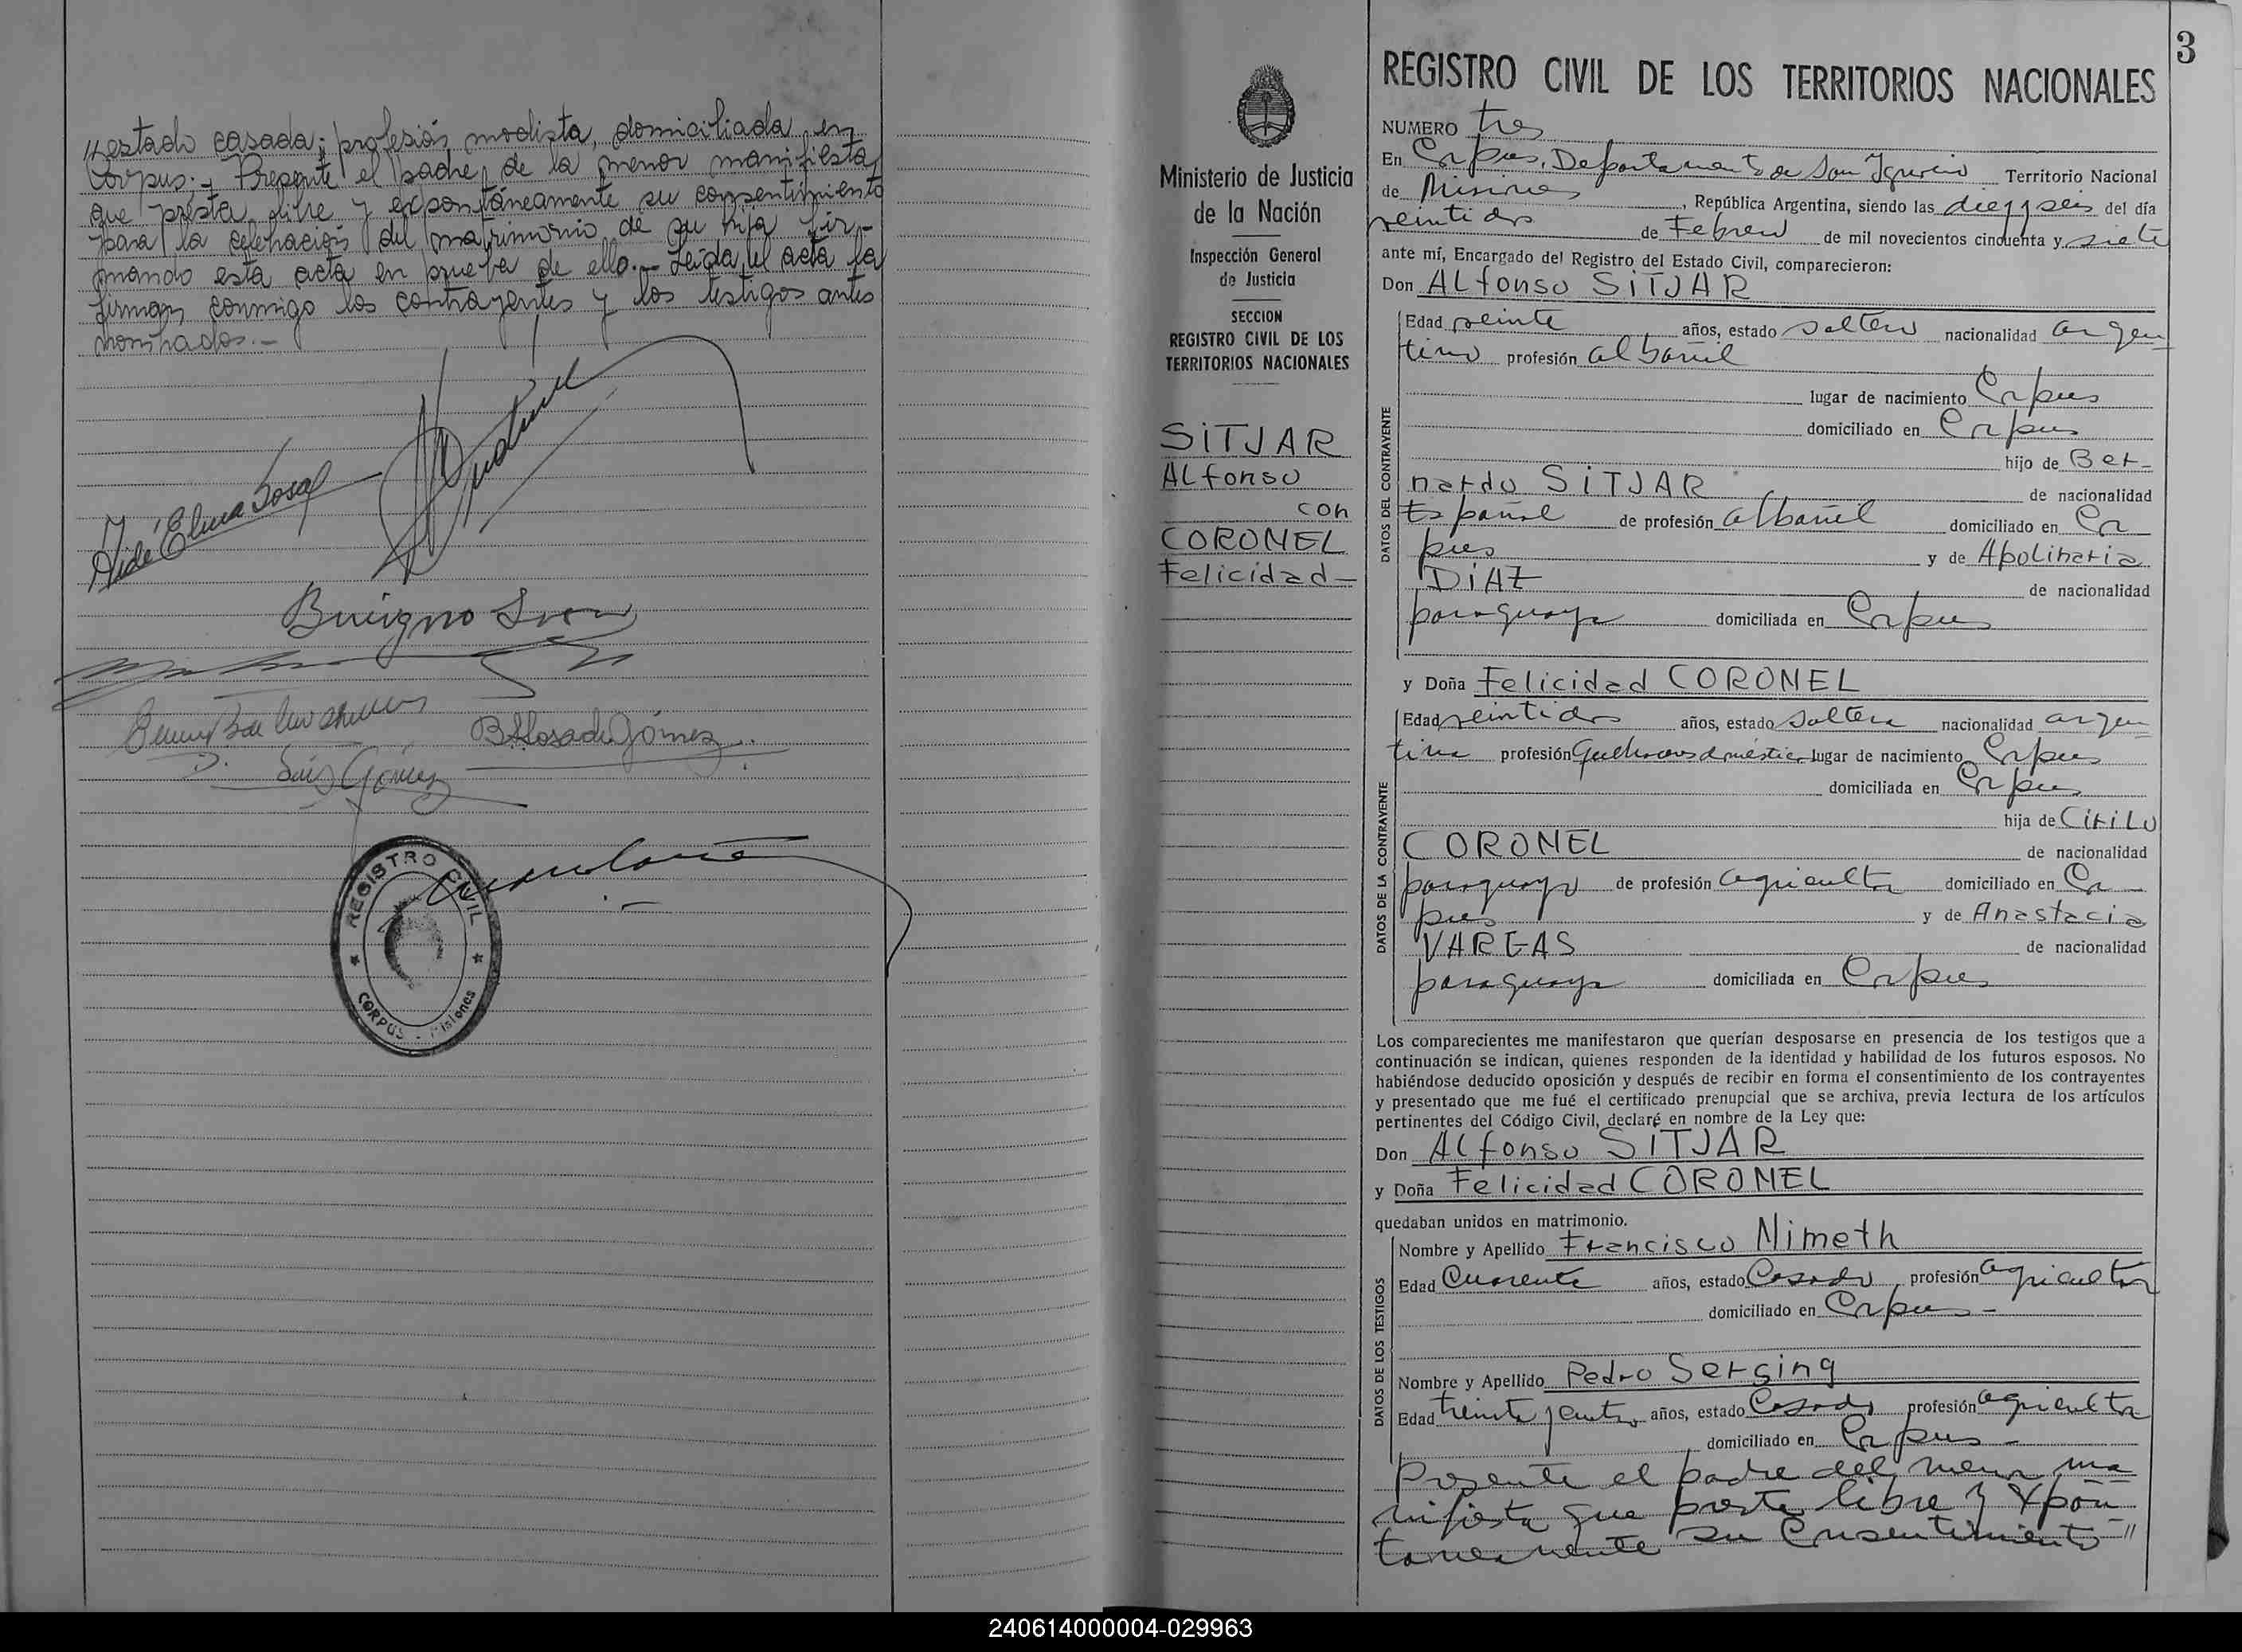 //estado casada; profesión modista, domiciliada en
Corpus;- Presente el padre de la menor manifiesta
que presta libre y expontáneamente su consentimiento
para la celebración del matrimonio de su hija fir-
mando esta acta en prueba de ello.- Leída el acta la
firman conmigo los contrayentes y los testigos antes
nombrados.-
Aidé Elina Sosa
Benigno Sosa
B. A. Sosa de Gómez
Luis Gómez
REGISTRO CIVIL
CORPUS - Misiones
3
Ministerio de Justicia
de la Nación
Inspección General
de Justicia
SECCION
REGISTRO CIVIL DE LOS
TERRITORIOS NACIONALES
SITJAR
ALfonso
con
CORONEL
Felicidad-
REGISTRO CIVIL DE LOS TERRITORIOS NACIONALES
NUMERO tres
En Corpus, Departamento de San Ignacio Territorio Nacional
de Misiones, República Argentina, siendo las diez y seis del día
veintidos de Febrero de mil novecientos cincuenta y siete
ante mí, Encargado del Registro del Estado Civil, comparecieron:
Don ALfonso SITJAR
DATOS DEL CONTRAYENTE
Edad veinte años, estado soltero nacionalidad argen
tino profesión albañil
lugar de nacimiento Corpus
domiciliado en Corpus
hijo de Ber-
nardo SITJAR de nacionalidad
Español de profesión albañil domiciliado en Cor
pus y de Apolinaria
DIAZ de nacionalidad
paraguaya domiciliada en Corpus
y Doña Felicidad CORONEL
DATOS DE LA CONTRAYENTE
Edad veintidos años, estado soltera nacionalidad argen
tina profesión Quehaceres domésticos lugar de nacimiento Corpus
domiciliada en Corpus
hija de Cirilo
CORONEL de nacionalidad
paraguayo de profesión agricultor domiciliado en Cor-
pus y de Anastacia
VARGAS de nacionalidad
paraguaya domiciliada en Corpus
Los comparecientes me manifestaron que querían desposarse en presencia de los testigos que a
continuación se indican, quienes responden de la identidad y habilidad de los futuros esposos. No
habiéndose deducido oposición y después de recibir en forma el consentimiento de los contrayentes
y presentado que me fué el certificado prenupcial que se archiva, previa lectura de los artículos
pertinentes del Código Civil, declaré en nombre de la Ley que:
Don ALfonso SITJAR
y Doña Felicidad CORONEL
quedaban unidos en matrimonio.
DATOS DE LOS TESTIGOS
Nombre y Apellido Francisco Nimeth
Edad Cuarenta años, estado Casado, profesión agricultor
domiciliado en Corpus-
Nombre y Apellido Pedro Serging
Edad treinta y cuatro años, estado Casado profesión agricultor
domiciliado en Corpus-
Presente el padre del menor ma
nifiesta que presta libre y expon
taneamente su Consentimiento-//
240614000004-029963